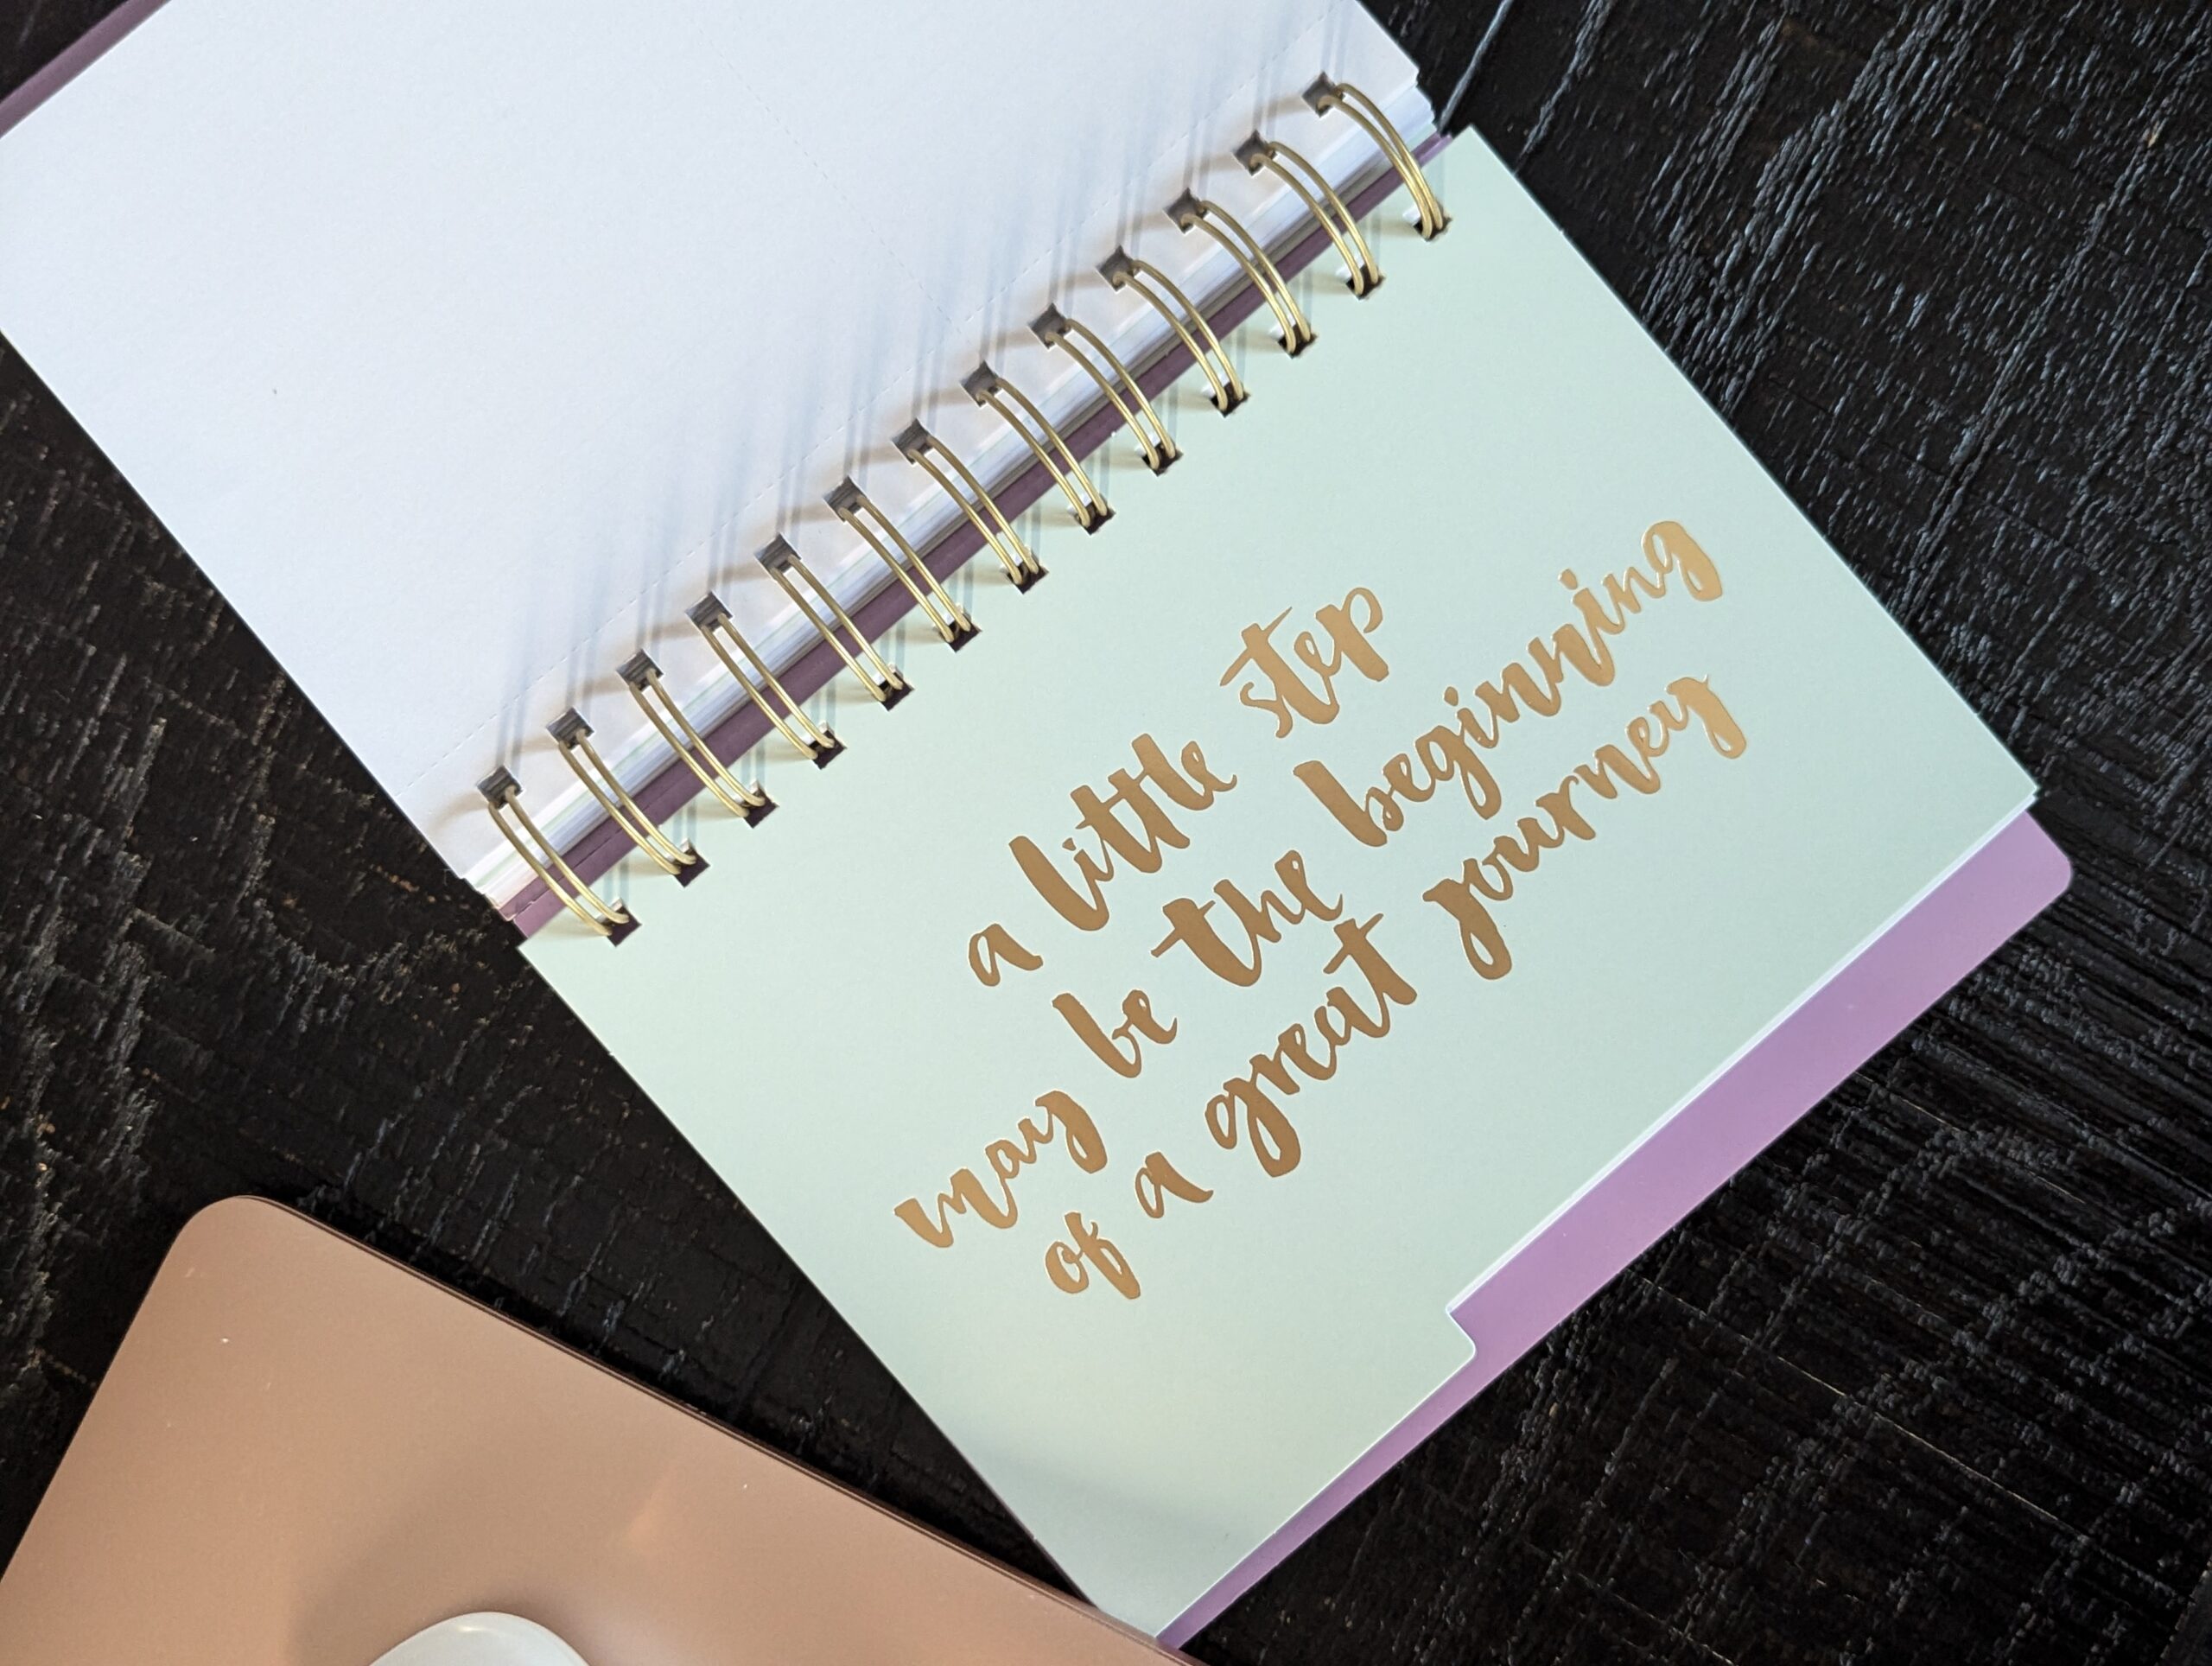 a little step
may be the beginning
of a great journey